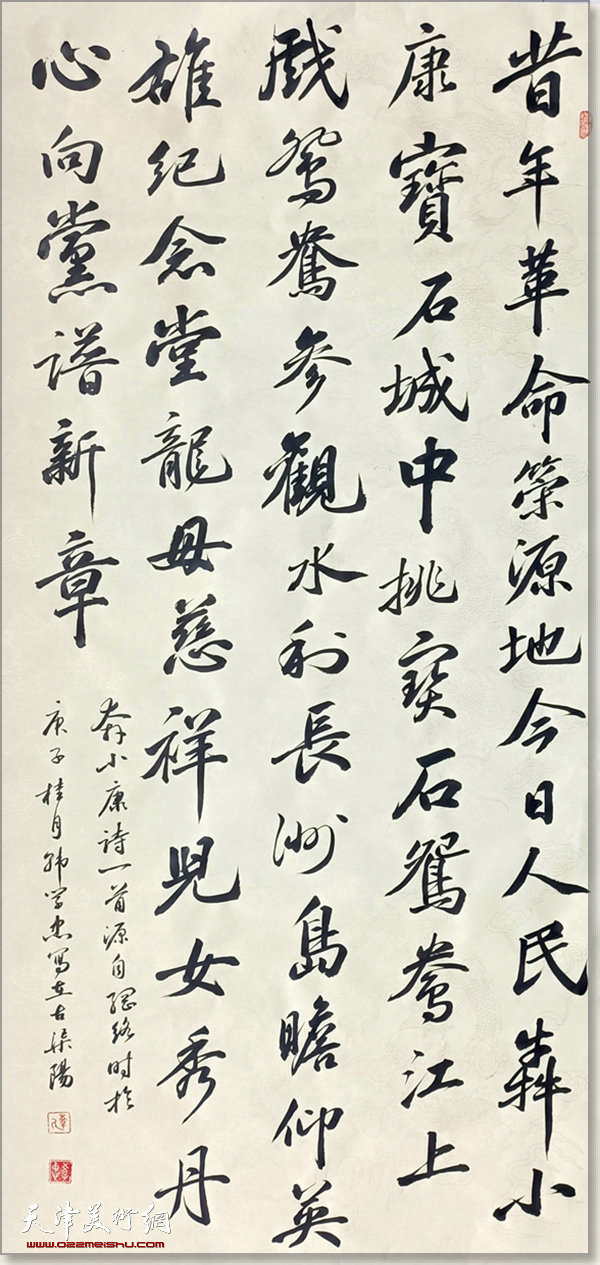 昔年革命策源地今日人民犇小
康寶石城中挑寶石鴛鴦江上
戲鴛鴦參觀水利長洲島瞻仰英
雄纪念堂龍母慈祥児女秀丹
心向黨譜新章
奔小康诗一首源自网络时於
庚子桂月韩学忠写在古渠陽
天津美術網
www.022meishu.com